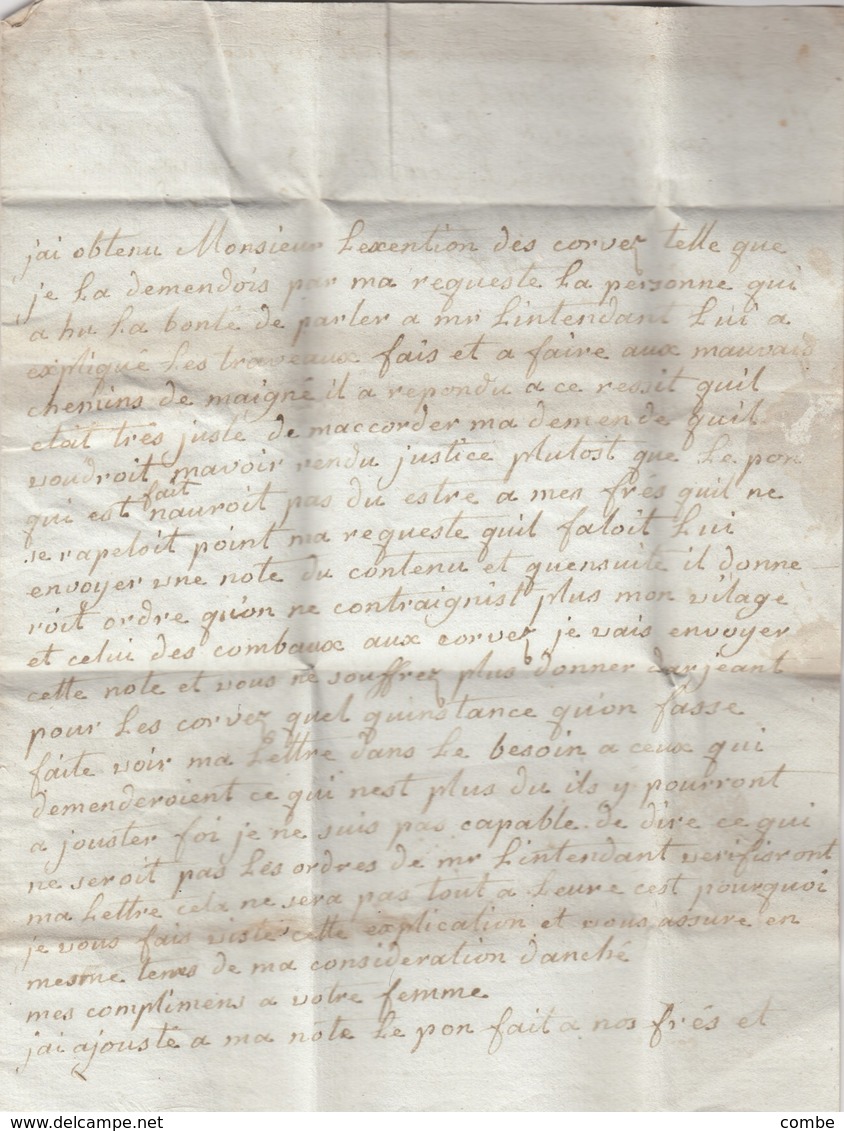 jai obtenu Monsieur Lexention des corvez telle que
je La demendois par ma requeste La personne qui
a hu La bonté de parler a mr Lintendant Lui a
expliqué Les traveaux fais et a faire aux mauvais
chemins de maigné il a repondu a ce ressit quil
etoit très juste de maccorder ma demende quil
voudroit mavoir rendu justice plutost que Le pon
qui est fait nauroit pas du estre a mes frés quil ne
se rapeloit point ma requeste quil faloit Lui
envoyer une note du contenu et quensuite il donne
roit ordre qu'on ne contraignist plus mon vilage
et celui des combaux aux corvez je vais envoyer
cette note et vous ne souffrez plus donner darjeant
pour Les corvez quel quinstance qu'on fasse
faite voir ma Lettre dans Le besoin a ceux qui
demenderoient ce qui nest plus du ils y pourront
a jouster foi je ne suis pas capable de dire ce qui
ne seroit pas Les ordres de mr Lintendant verifiront
ma Lettre cela ne sera pas tout a Leure cest pourquoi
je vous fais viste cette explication et vous assure en
mesme tems de ma consideration danché
mes complimens a votre femme
jai ajousté a ma note Le pon fait a nos frés et
www.delcampe.net
combe